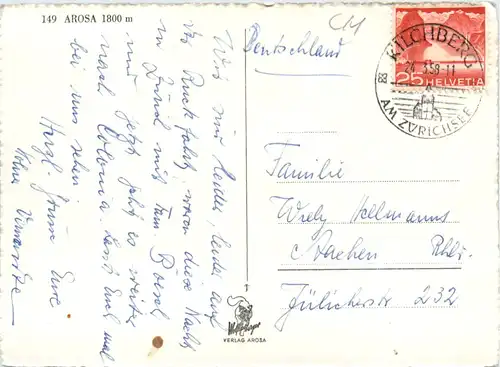 149 AROSA 1800 m
Wir sind leider, leider auf
der Rückfahrt, waren diese Nacht
in Zürich mit Tom
und jetzt geht es weiter
nach Colonia. Lasst Euch mal
bei uns sehen
Herzl. Grüsse Eure
Deutschland
CM
KILCHBERG
24. 3.58-11
AM ZÜRICHSEE
25 HELVETIA
Familie
Willy Hellmanns
Aachen Rhld.
Jülicherstr 232
VERLAG AROSA